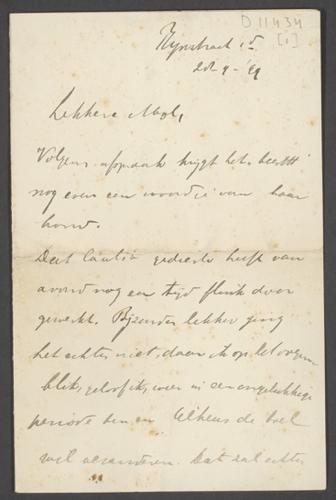 D 11434
[1]
Rijnstraat
Lekkere Mol,
Volgens afspraak krijgt het beest
nog even een woordje van haar
hond.
Dat gedeelte heeft van
avond nog een tijd flink door
gewerkt. Bijzonder lekker ging
het echter niet, daar ik op het oogen
blik, geloof ik, weer in een ongelukkige
periode ben en telkens de boel
wil veranderen. Dat zal echter